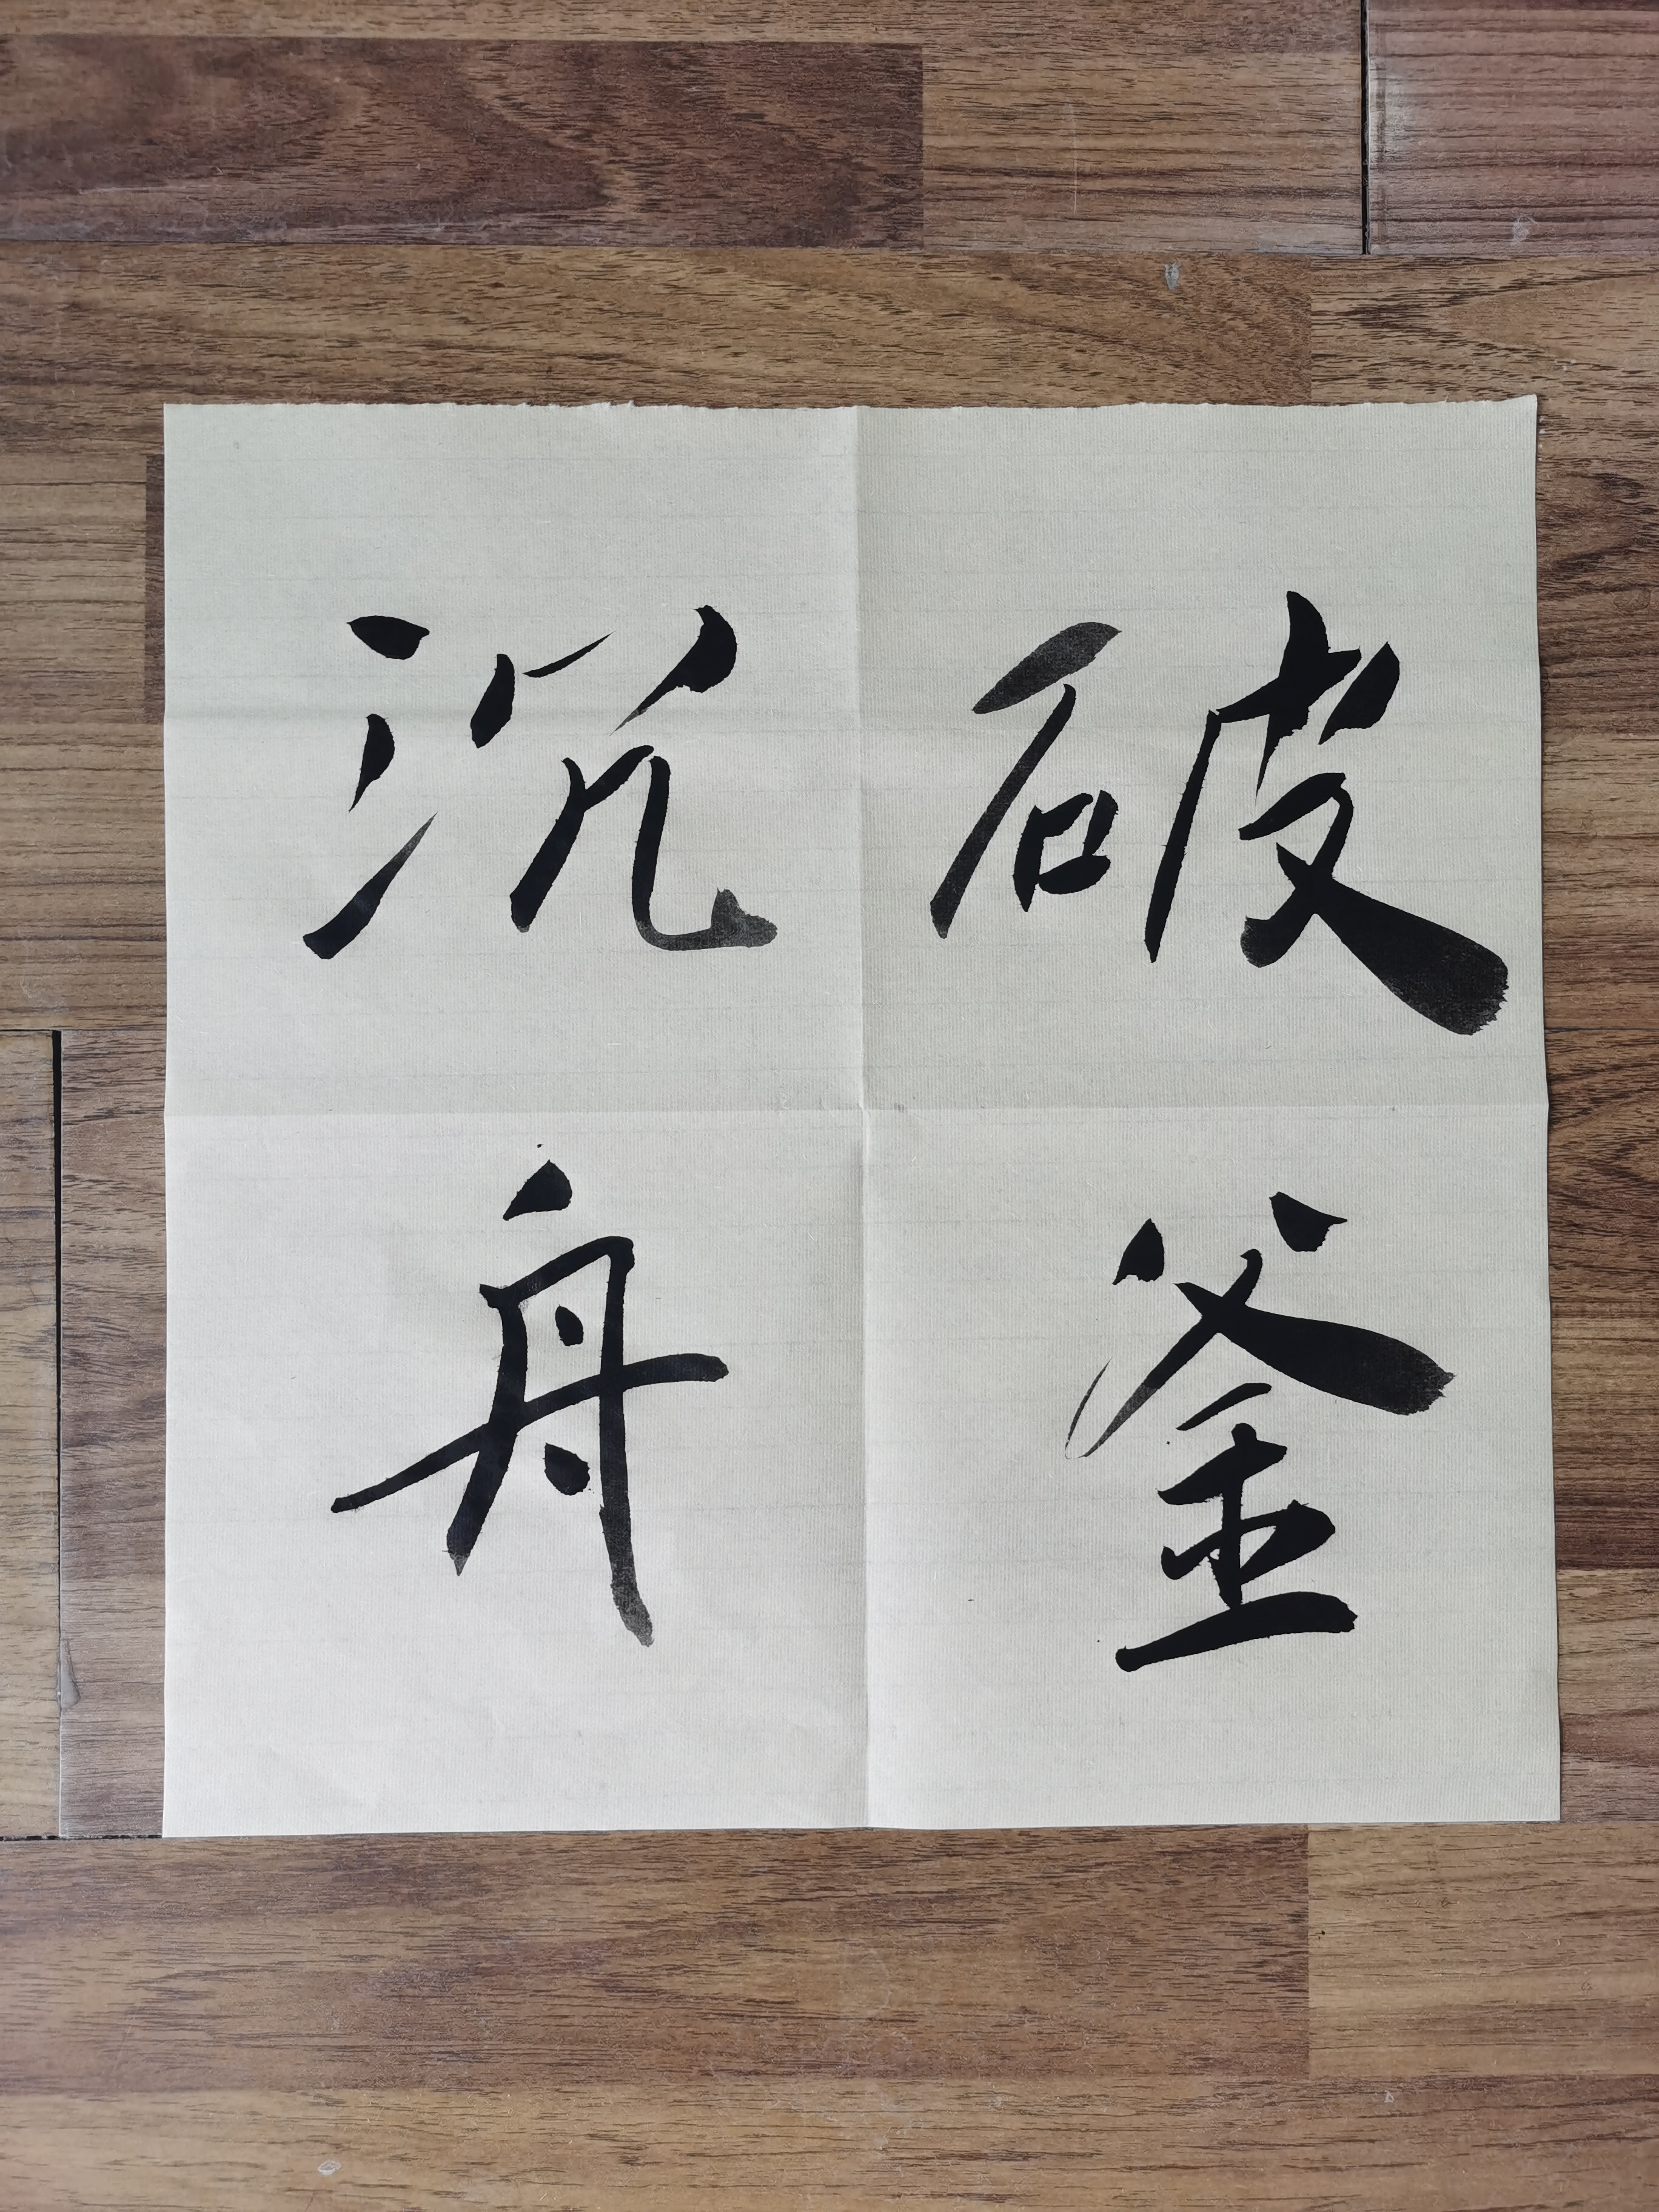 破釜
沉舟